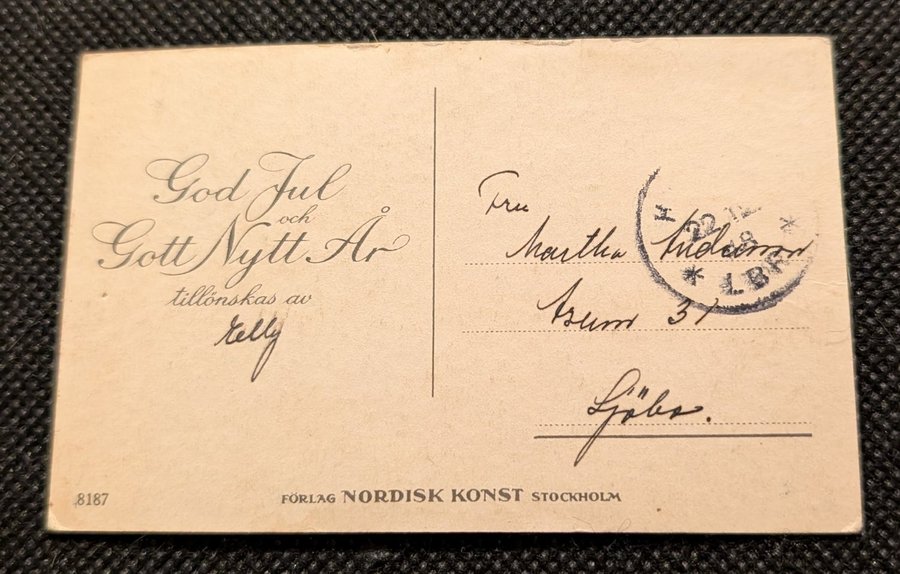 God Jul
och
Gott Nytt År
tillönskas av
Elly
Fru
Martha
Asum 31
Sjöbo.
22 12
28
LBR
8187
FÖRLAG NORDISK KONST STOCKHOLM